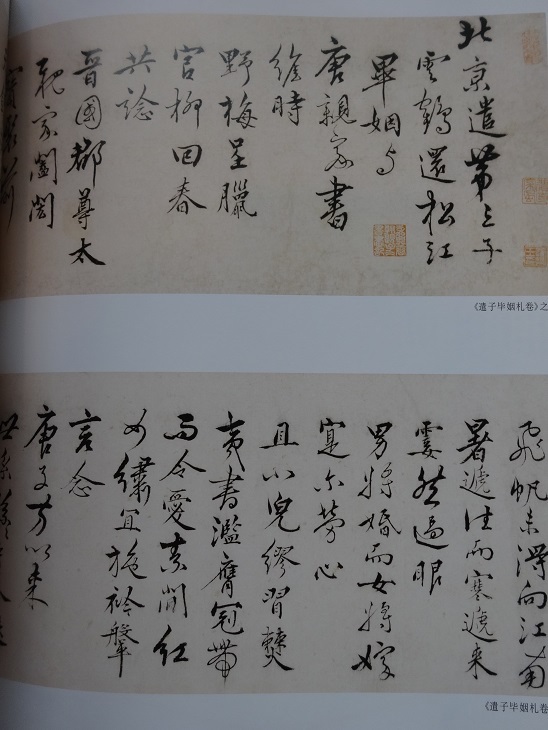 北京遣第三子
雲鶴還松江
畢姻与
唐親家書
維時
野梅呈臘
官柳回春
共諗
晉國都尊太
親家閫閤
《遣子毕姻札卷》之
飛帆未得向江南
暑遞往而寒遞来
霎然過眼
男將婚而女將嫁
寔尔勞心
且小兒繆習僰
夷書濫膺冠帶
而令愛素閒紅
繡宜施衿鞶
言念
唐子方以来
《遣子毕姻札卷